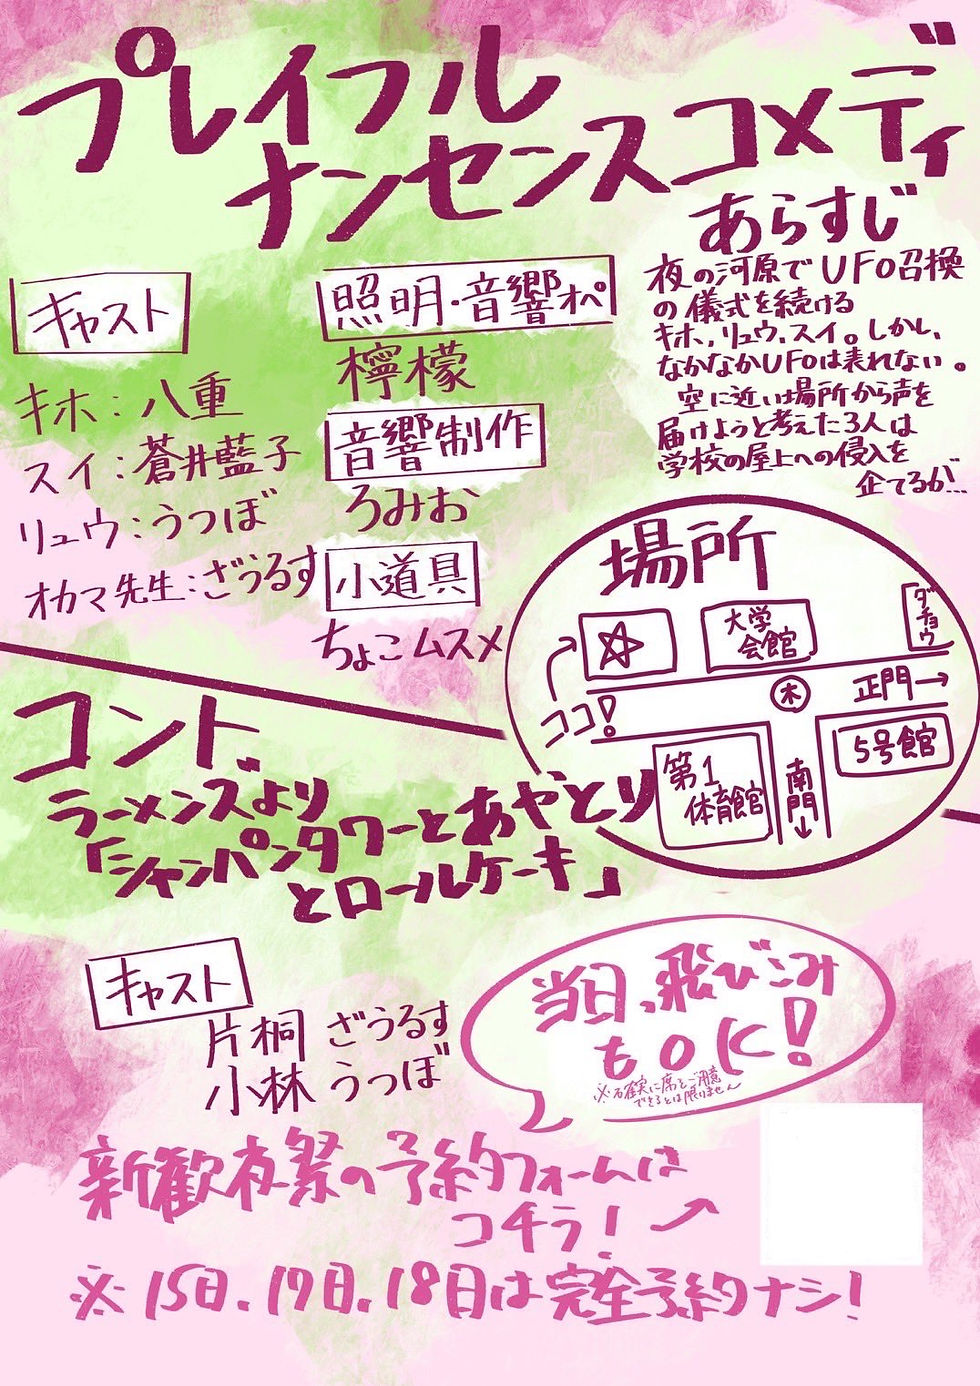 プレイフル
ナンセンスコメディ
あらすじ
夜の河原でUFO召換
の儀式を続ける
キホ,リュウ,スイ。しかし、
なかなかUFOは表れない。
空に近い場所から声を
届けようと考えた3人は
学校の屋上への侵入を
企てるが…
キャスト
キホ:八重
スイ:蒼井藍子
リュウ:うつぼ
オカマ先生:ざうるす
照明・音響オペ
檸檬
音響制作
ろみお
小道具
ちょこムスメ
場所
ココ!
大学
会館
ダチョウ
木
正門→
第1
体育館
南門↓
5号館
コント
ラーメンズより
「シャンパンタワーとあやとり
とロールケーキ」
キャスト
片桐 ざうるす
小林 うつぼ
当日、飛びこみ
もOK!
※確実に席をご用意
できるとは限りません
新歓夜祭の予約フォームは
コチラ!
※15日、17日、18日は完全予約ナシ!